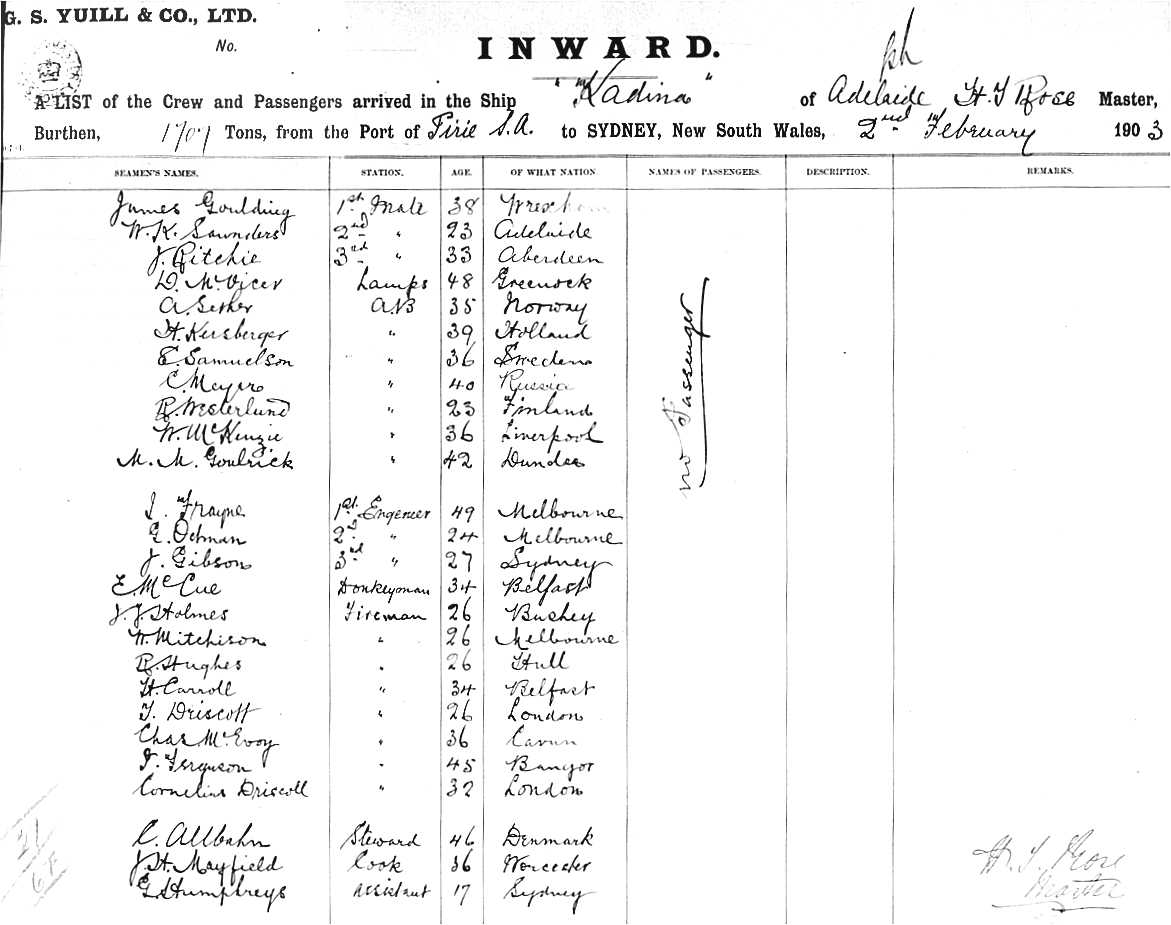 G. S. YUILL & CO., LTD.
No.
INWARD.
A LIST of the Crew and Passengers arrived in the Ship "Kadina" of Adelaide H. T Rose Master,
Burthen, 1707 Tons, from the Port of Pirie S.A. to SYDNEY, New South Wales, 2nd February 1903
SEAMEN'S NAMES. STATION. AGE. OF WHAT NATION NAMES OF PASSENGERS. DESCRIPTION. REMARKS.
James Goulding 1st Mate 38 Wrexham
W. K. Saunders 2nd " 23 Adelaide
J. Ritchie 3rd " 33 Aberdeen
D. McVicer Lamps 48 Greenock
A. AB 35 Norway
H. Kersberger " 39 Holland
E. Samuelson " 36 Sweden
C. Meyers " 40 Russia
R. Westerlund " 23 Finland
W. McKenzie " 36 Liverpool
M. M. Goulrick " 42 Dundee
no Passenger
Frayne 1st Engeneer 49 Melbourne
G. Oetman 2nd " 24 Melbourne
J. Gibson 3rd " 27 Sydney
E. McCue Donkeyman 34 Belfast
J. J. Holmes Fireman 26 Bushey
W. Mitchison " 26 Melbourne
R. Hughes " 26 Hull
H. Carroll " 34 Belfast
T. Driscott " 26 London
Chas McEvoy " 36 Cavan
Ferguson " 45 Bangor
Cornelius Driscoll " 32 London
C. Allbahn Steward 46 Denmark
J. H. Mayfield Cook 36 Worcester
G. Humphreys assistant 17 Sydney
H. T. Rose
Master